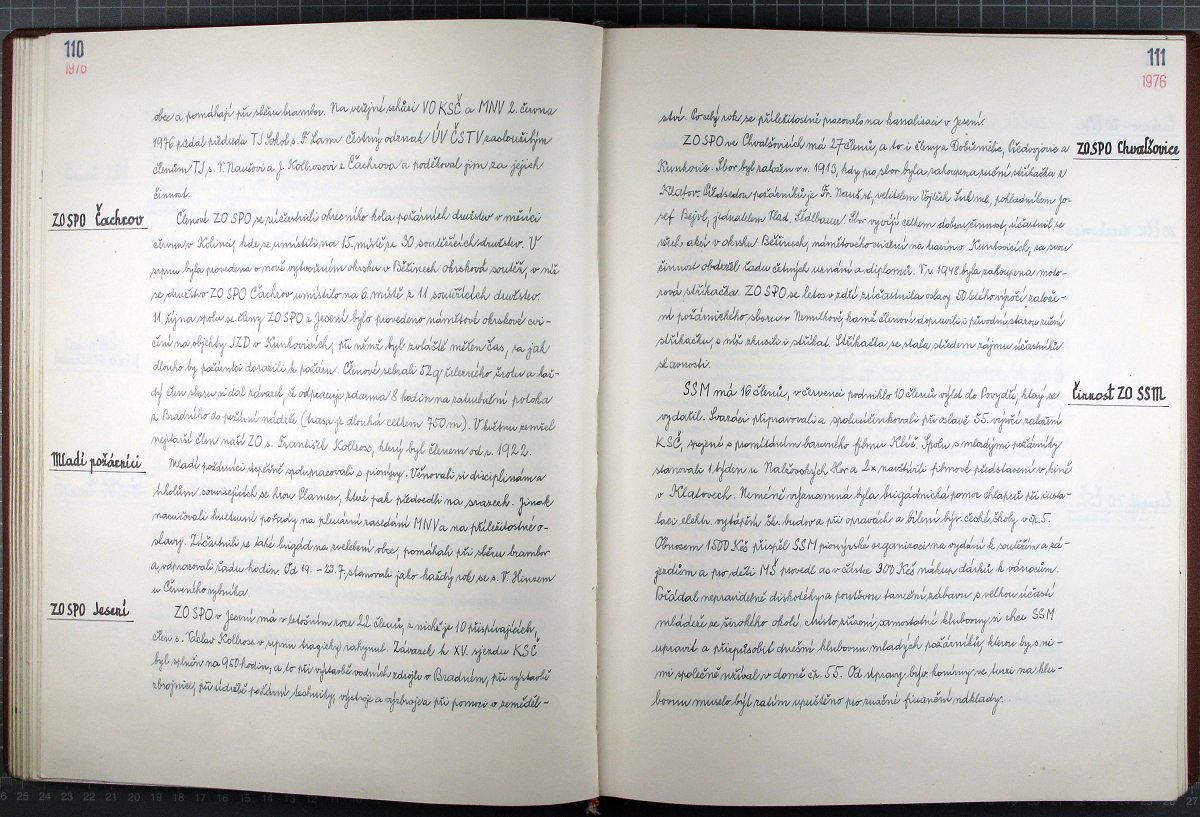 110
1976
obce a pomáhají při sběru brambor. Na veřejné schůzi VO KSČ a MNV 2. června
1976 předal předseda TJ Sokol s. F. Lami čestný odznak ÚV ČSTV zasloužilým
členům TJ s. V. a J. Kollrosovi z Čachrova a poděkoval jim za jejich
činnost.
ZO SPO Čachrov
Členové ZO SPO se zúčastnili okresního kola požárních družstev v měsíci
červnu v Kolinci, kde se umístili na 15. místě z 30 soutěžících družstev. V
srpnu byla provedena v nově vytvořeném okrsku v Běšinech okrsková soutěž, v níž
se družstvo ZO SPO Čachrov umístilo na 6. místě z 11 soutěžících družstev.
11. října spolu se členy ZO SPO z Jesení bylo provedeno námětové okrskové cvi-
čení na objekty JZD v Kunkovicích, při němž byl zvláště měřen čas, za jak
dlouho by požárníci dorazili k požáru. Členové sebrali 52 q železného šrotu a kaž-
dý člen sboru si dal závazek že odpracuje zdarma 8 hodin na zatrubnění potoka
z Bradného do požární nádrže (trasa je dlouhá celkem 750 m). V květnu zemřel
nejstarší člen naší ZO s. František Kollros, který byl členem od r. 1922.
Mladí požárníci
Mladí požárníci úspěšně spolupracovali s pionýry. Věnovali si disciplinám a
úkolům souvisejících se hrou Plamen, které pak předvedli na srazech. Jinak
nacvičovali kulturní pořady na plenární zasedání MNV a na příležitostné o-
slavy. Zúčastnili se také brigád na zvelebení obce, pomáhali při sběru brambor
a odpracovali řadu hodin. Od 19. - 23. 7. stanovali jako každý rok se s. V. Hinzem
u Červeného rybníka.
ZO SPO Jesení
ZO SPO v Jesení má v letošním roce 22 členů, z nichž je 10 přispívajících,
člen s. Václav Kollross v srpnu tragicky zahynul. Závazek k XV. sjezdu KSČ
byl splněn na 950 hodin, a to při výstavbě vodních zdrojů v Bradném, při výstavbě
zbrojnice, při údržbě požární techniky, výstroje a výzbroje a při pomoci v zeměděl-
111
1976
ství. Po celý rok se příležitostně pracovalo na kanalisaci v Jesení.
ZO SPO Chvalšovice
ZO SPO ve Chvalšovicích má 27 členů, a to i členy z Dobřemilic, Předvojovic a
Kunkovic. Sbor byl založen v r. 1913, kdy pro sbor byla zakoupena ruční stříkačka z
Klatov. Předsedou požárníků je Fr. velitelem Vojtěch pokladníkem Jo-
sef Bejvl, jednatelem Vlad. Šlédlbauer. Sbor vyvíjí celkem dobrou činnost, účastnil se
všech akcí v okrsku Běšinech, námětového cvičení na farmu v Kuntovicích, za svou
činnost obdržel řadu čestných uznání a diplomů. V r. 1948 byla zakoupena moto-
rová stříkačka. ZO SPO se letos v září zúčastnila oslavy 50letého výročí založe-
ní požárnického sboru v Nemilkově, kamž členové dopravili i původní starou ruční
stříkačku, s níž zkusili i stříkat. Stříkačka se stala středem zájmu účastníků
slavnosti.
činnost ZO SSM
SSM má 16 členů, v červenci podniklo 10 členů výlet do Povydří, který se
vydařil. Svazáci připravovali a spoluúčinkovali při oslavě 55. výročí založení
KSČ, spojené s promítáním barevného filmu Klíč. Spolu s mladými požárníky
stanovali 1 týden u Nalžovských Hor a 2x navštívili filmové představení v kině
v Klatovech. Neméně významná byla brigádnická pomoc chlapců při insta-
laci elektr. vytápění šk. budov a při opravách a bílení býv. české školy v čp. 5.
Obnosem 1500 Kčs přispěl SSM pionýrské organizaci na vydání k soutěžím a zá-
jezdům a pro děti MŠ provedl as v částce 300 Kčs nákup dárků k vánocům.
Pořádal nepravidelné diskotéky a pouťovou taneční zábavu s velkou účastí
mládeže ze širokého okolí. Místo zřízení samostatné klubovny si chce SSM
upravit a přizpůsobit dnešní klubovnu mladých požárníků, kterou by s ni-
mi společně užíval v domě čp. 55. Od úpravy býv. konírny ve tvrzi na klu-
bovnu muselo být zatím upuštěno pro značné finanční náklady.